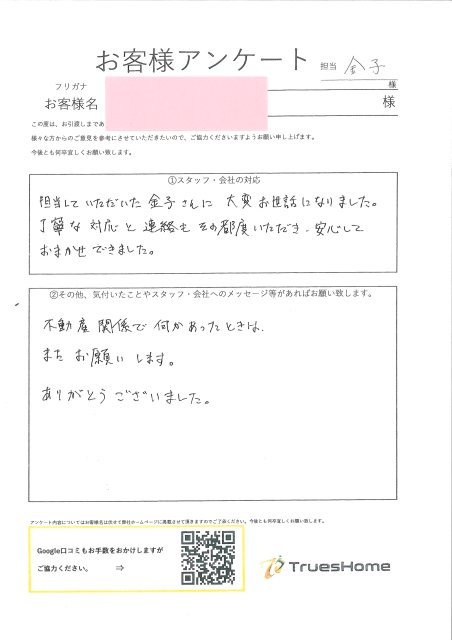 お客様アンケート
担当 金子
フリガナ
様
お客様名
様
この度は、お引渡しまであ
様々な方からのご意見を参考にさせていただきたいので、ご協力くださいますようお願い申し上げます。
今後とも何卒宜しくお願い致します。
①スタッフ・会社の対応
担当していただいた金子さんに大変お世話になりました。
丁寧な対応と連絡もその都度いただき、安心して
おまかせできました。
②その他、気付いたことやスタッフ・会社へのメッセージ等があればお願い致します。
不動産関係で何かあったときは、
またお願いします。
ありがとうございました。
アンケート内容についてはお客様名は伏せて弊社ホームページに掲載させて頂きますのでご了承ください。今後とも何卒宜しくお願い致します。
Google口コミもお手数をおかけしますが
ご協力ください。 ⇒
TruesHome